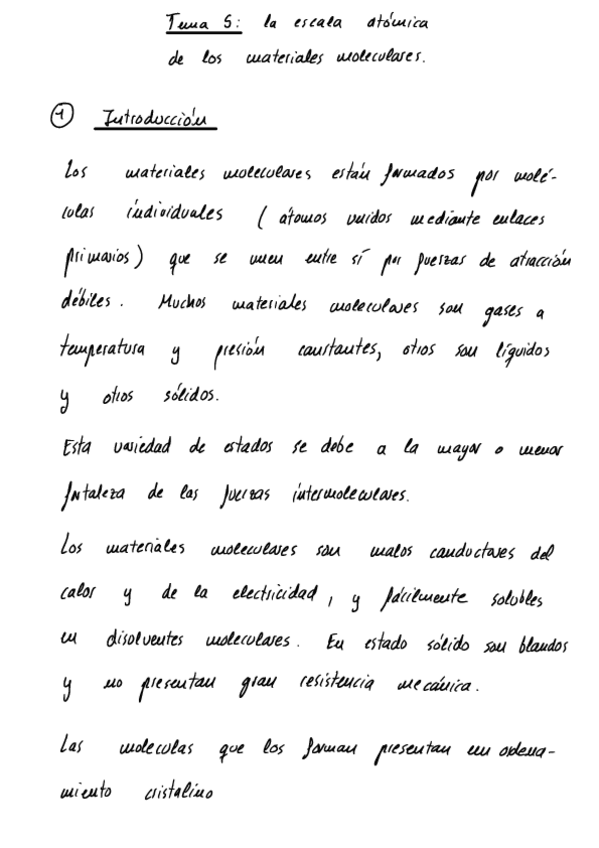 Tema 5: la escala atómica
de los materiales moleculares.
① Introducción
Los materiales moleculares están formados por molé-
culas individuales (átomos unidos mediante enlaces
primarios) que se unen entre sí por fuerzas de atracción
débiles. Muchos materiales moleculares son gases a
temperatura y presión constantes, otros son líquidos
y otros sólidos.
Esta variedad de estados se debe a la mayor o menor
fortaleza de las fuerzas intermoleculares.
Los materiales moleculares son malos conductores del
calor y de la electricidad, y fácilmente solubles
en disolventes moleculares. En estado sólido son blandos
y no presentan gran resistencia mecánica.
Las moleculas que los forman presentan un ordena-
miento cristalino